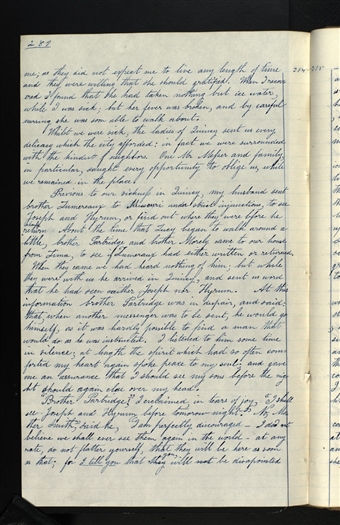 me; as they did not expect me to live any length of time
and they were willing that she should gratified. When I recov
ered I found that she had taken nothing but ice water,
while I was sick; but her fever was broken, and by careful
nursing she was soon able to walk about.
Whilst we were sick, the ladies of Quincy sent us every
delicacy which the city afforded; in fact we were surrounded
with the kindest of neighbors. One Mr. Messer and family,
in particular, sought every opportunity to oblige us, while
we remained in the place.
Previous to our sickness in Quincy, my husband sent
brother Lamereaux to Missouri under strict injunctions, to see
Joseph and Hyrum, or find out where they were before he
return. About the time that Lucy began to walk around a
little, brother Partridge and brother Morely came to our house
from Lima, to see if Lamereaux had either written or returned.
When they came we had heard nothing of him; but while
they were with us he arrived in Quincy, and sent us word
that he had seen neither Joseph nor Hyrum. At this
information brother Partridge was in despair, and said:
that, when another messenger was to be sent, he would go
himself, as it was hardly possible to find a man that
would do as he was instructed. I listened to him some time
in silence; at length the spirit which had so often com-
forted my heart again spoke peace to my soul, and gave
me an assurance that I should see my sons before the nig
ht should again close over my head.
"Brother Partridge", I exclaimed, in tears of joy, "I shall
see Joseph and Hyrum before tomorrow night." "No, Mo
ther Smith", said he, "I am perfectly discouraged - I don't
believe we shall ever see them again in the world - at any
rate, do not flatter yourself, that they will be here as soon
as that; for I tell you that you will be disapointed